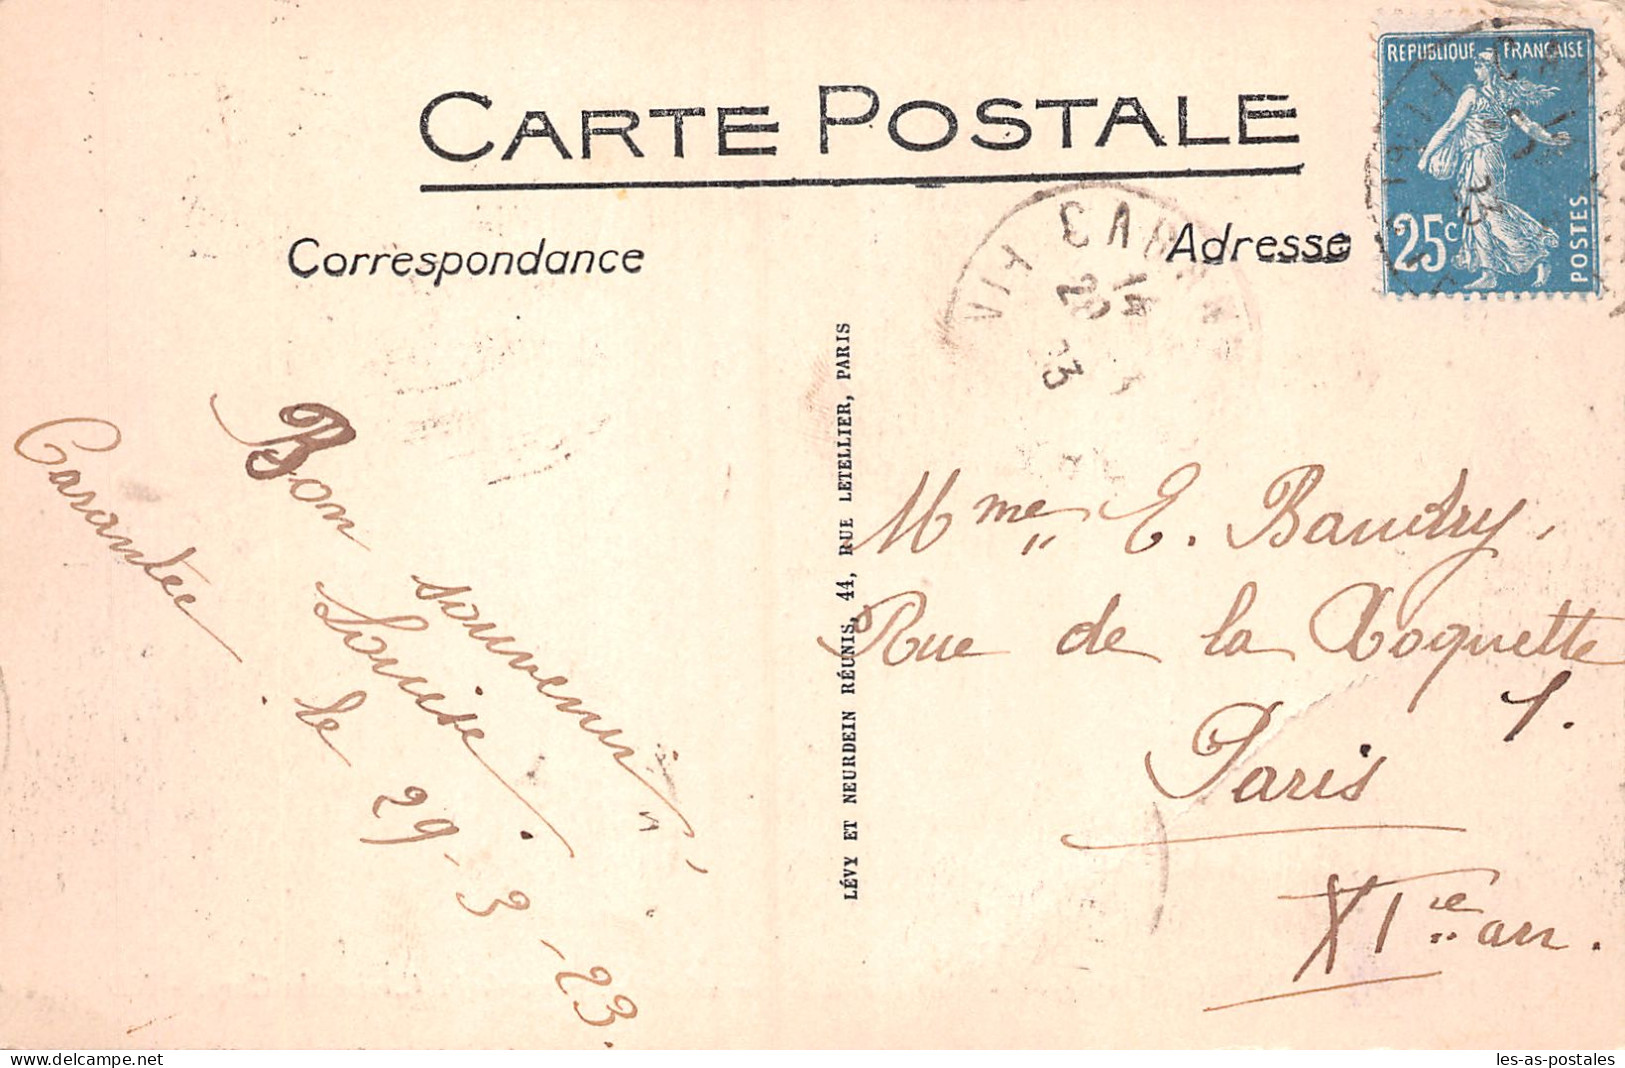 CARTE POSTALE
REPUBLIQUE FRANÇAISE
25c
POSTES
Correspondance
Adresse
14
23
LÉVY ET NEURDEIN RÉUNIS, 44, RUE LETELLIER, PARIS
Bon souvenir,
Louise.
Carantec
le 29-3-23.
Mme E. Baudry,
Rue de la Roquette
1.
Paris
XIe arr.
delcampe.net
les-as-postales